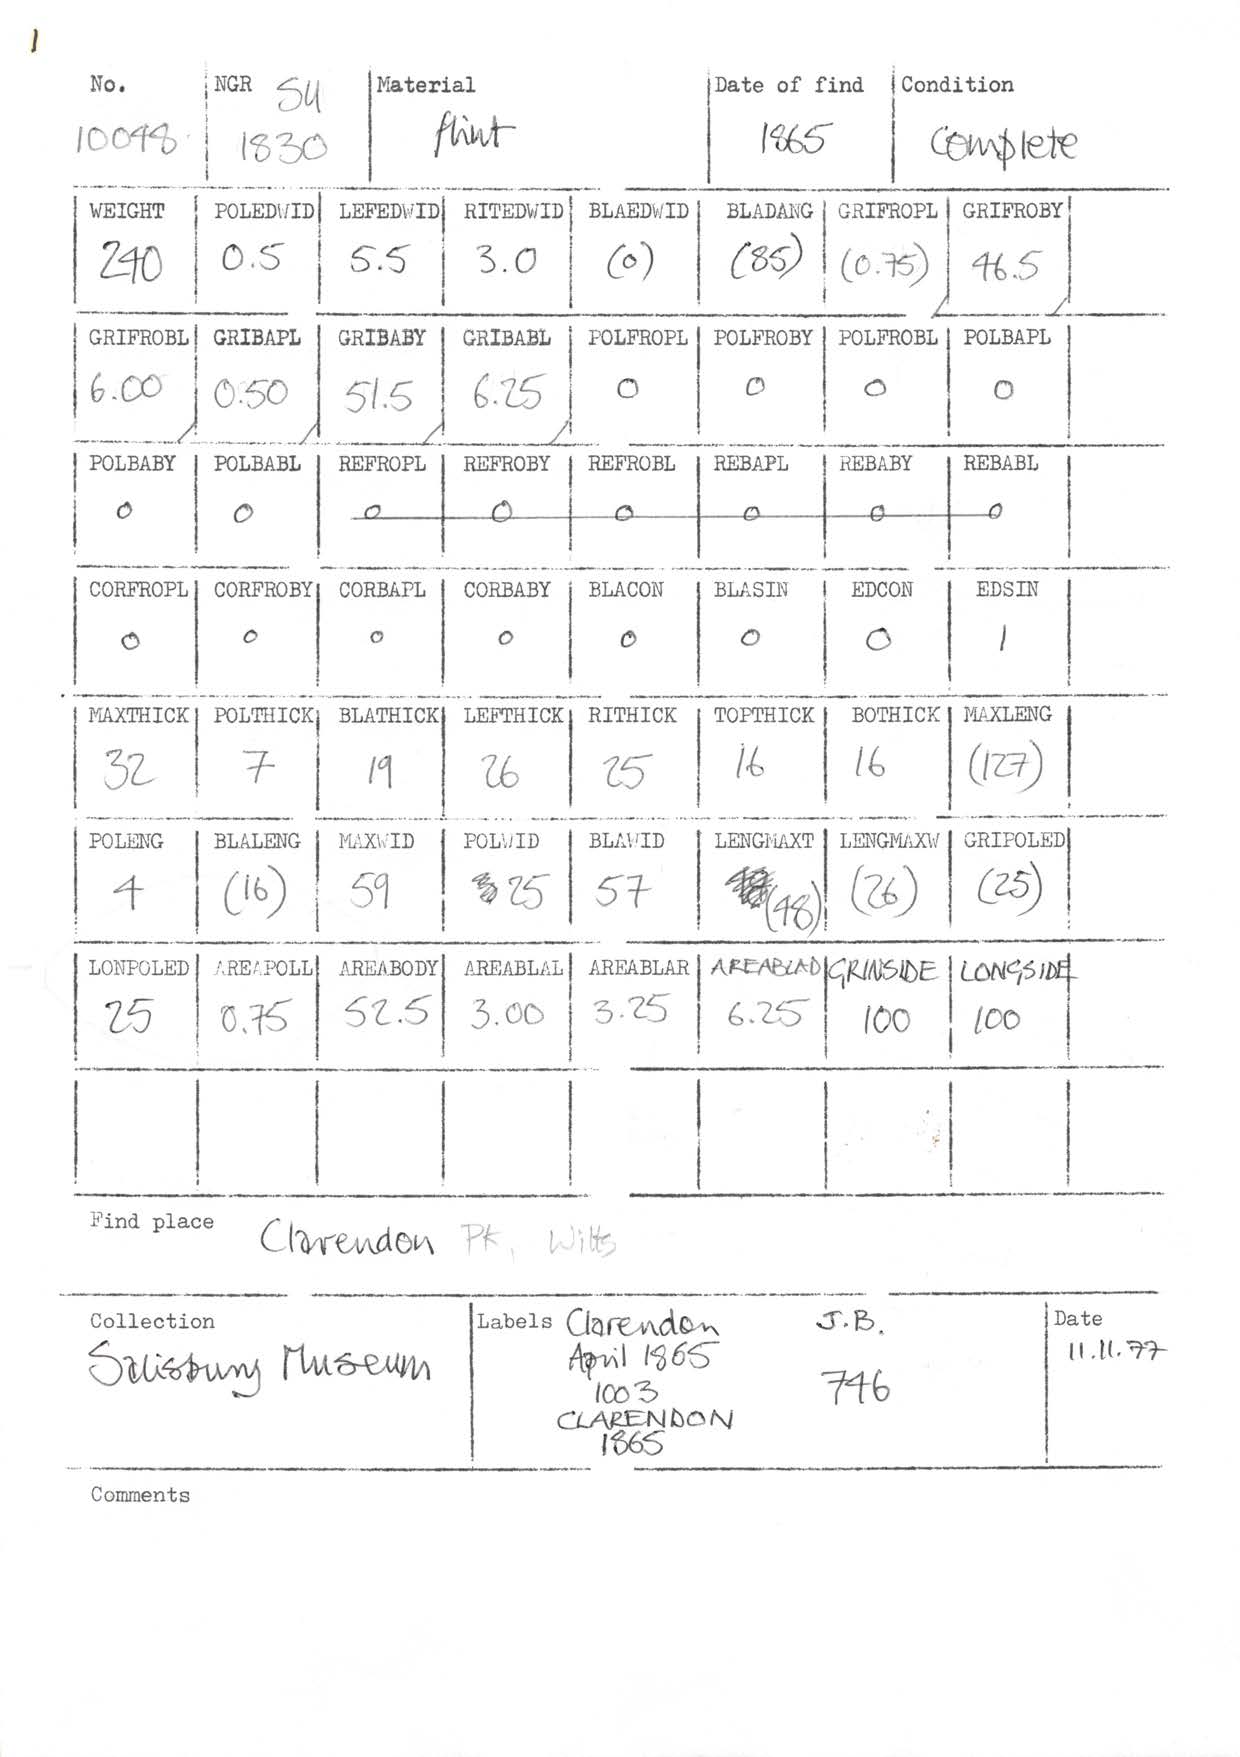 1
No. NGR SU Material Date of find Condition
10048 1830 flint 1865 Complete
WEIGHT POLEDWID LEFEDWID RITEDWID BLAEDWID BLADANG GRIFROPL GRIFROBY
240 0.5 5.5 3.0 (0) (85) (0.75) 46.5
GRIFROBL GRIBAPL GRIBABY GRIBABL POLFROPL POLFROBY POLFROBL POLBAPL
6.00 0.50 51.5 6.25 0 0 0 0
POLBABY POLBABL REFROPL REFROBY REFROBL REBAPL REBABY REBABL
0 0 0 0 0 0 0 0
CORFROPL CORFROBY CORBAPL CORBABY BLACON BLASIN EDCON EDSIN
0 0 0 0 0 0 0 1
MAXTHICK POLTHICK BLATHICK LEFTHICK RITHICK TOPTHICK BOTHICK MAXLENG
32 7 19 26 25 16 16 (127)
POLENG BLALENG MAXWID POLWID BLAWID LENGMAXT LENGMAXW GRIPOLED
4 (16) 59 25 57 (48) (26) (25)
LONPOLED AREAPOLL AREABODY AREABLAL AREABLAR AREABLAD GRINSIDE LONGSIDE
25 0.75 52.5 3.00 3.25 6.25 100 100
Find place Clarendon Pk, Wilts
Collection Labels Clarendon J.B. Date
Salisbury Museum April 1865 11.11.77
1003 746
CLARENDON
1865
Comments